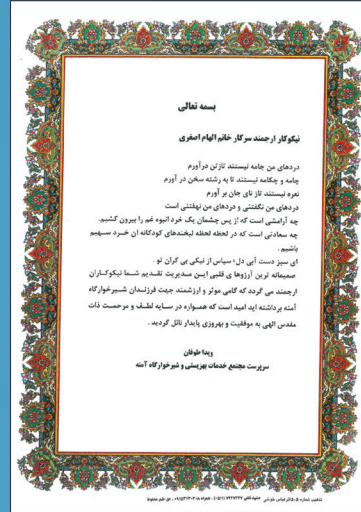 بسمه تعالی
نیکوکار ارجمند سرکار خانم الهام اصغری
دردهای من جامه نیستند تا ز تن در آورم
چامه و چکامه نیستند تا به رشته سخن در آورم
نعره نیستند تا ز نای جان بر آورم
دردهای من نگفتنی و دردهای من نهفتنی است
چه آرامشی است که از پس چشمان یک خرد انبوه غم را بیرون کشیم.
چه سعادتی است که در لحظه لحظه لبخندهای کودکانه ان خرد سهیم
باشیم .
ای سبز دست آبی دل، سپاس از نیکی بی کران تو .
صمیمانه ترین آرزوها ی قلبی ایـن مـدیریت تقـدیم شـما نیکوکـاران
ارجمند می گردد که گامی موثر و ارزشمند جهت فرزنـدان شـیرخوارگاه
آمنه برداشته اید امید است که همـواره در سـایه لطـف و مرحمـت ذات
مقدس الهی به موفقیت و بهروزی پایدار نائل گردید .
ویدا طوفان
سرپرست مجتمع خدمات بهزیستی و شیرخوارگاه آمنه